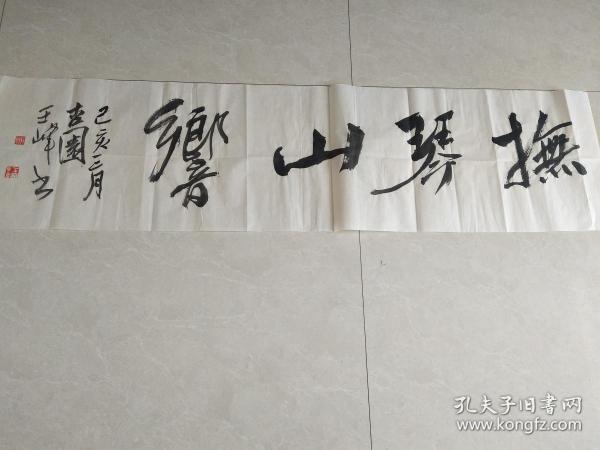 撫琴山響
己亥三月
王峰书
孔夫子旧书网
www.kongfz.com